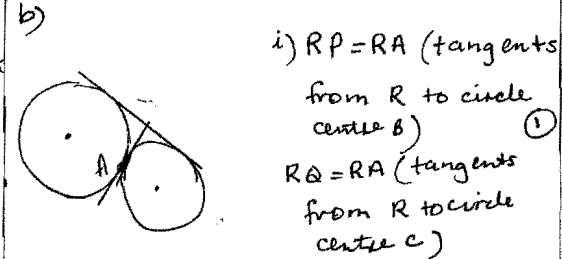 b)
i) RP = RA (tangents
from R to circle
centre B)
①
A
RQ = RA (tangents
from R to circle
centre C)